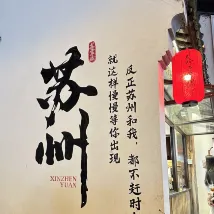 苏州
XINZHEN
YUAN
反正苏州和我,都不赶时
就这样慢慢等你出现